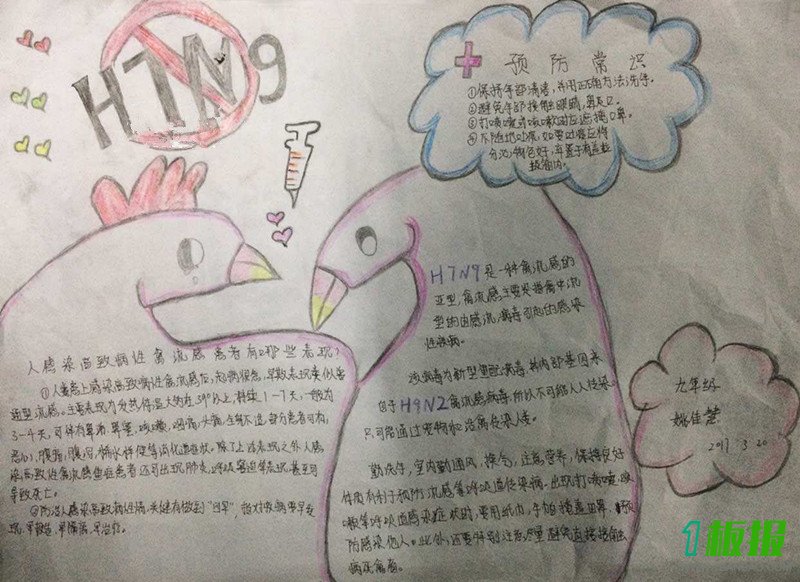 H7N9
预防常识
①保持手部清洁,并用正确方法洗手。
②避免手部接触眼睛,鼻及口。
③打喷嚏或咳嗽时应遮掩口鼻。
④不随地吐痰,如要吐痰应将
分泌物包好,弃置于有盖垃
圾箱内。
H7N9是一种禽流感的
亚型,禽流感主要是指禽中流
型的由感流病毒引起的感染
性疾病。
该病毒为新型重配病毒,其内部基因来
自于H9N2禽流感病毒,所以不可能人人传染。
只可能通过宠物和活禽传染人。
勤洗手,室内勤通风,换气,注意营养,保持良好
体质有利于预防流感等呼吸道传染病。出现打喷嚏,咳
嗽等呼吸道感染症状时,要用纸巾,手帕掩盖口鼻,预
防感染他人。此外,还要特别注意尽量避免直接接触
病死禽畜。
人感染高致病性禽流感患者有哪些表现?
①人类患上感染高致病性禽流感后,起病很急,早期表现类似普
通型流感。主要表现为发热,体温大多在39°以上,持续1-7天,一般为
3-4天,可伴有鼻涕,鼻塞,咳嗽,咽痛,头痛,全身不适,部分患者可有,
恶心,腹痛,腹泻,稀水样便等消化道症状。除了上述表现之外,人感
染高致病性禽流感重症患者还可出现肺炎,呼吸窘迫等表现,甚至可
导致死亡。
②防治人感染高致病性禽,关键要做到"四早",指对疾病要早发
现,早报告,早隔离,早治疗。
九年级
姚佳慧
2017 3 20
1板报